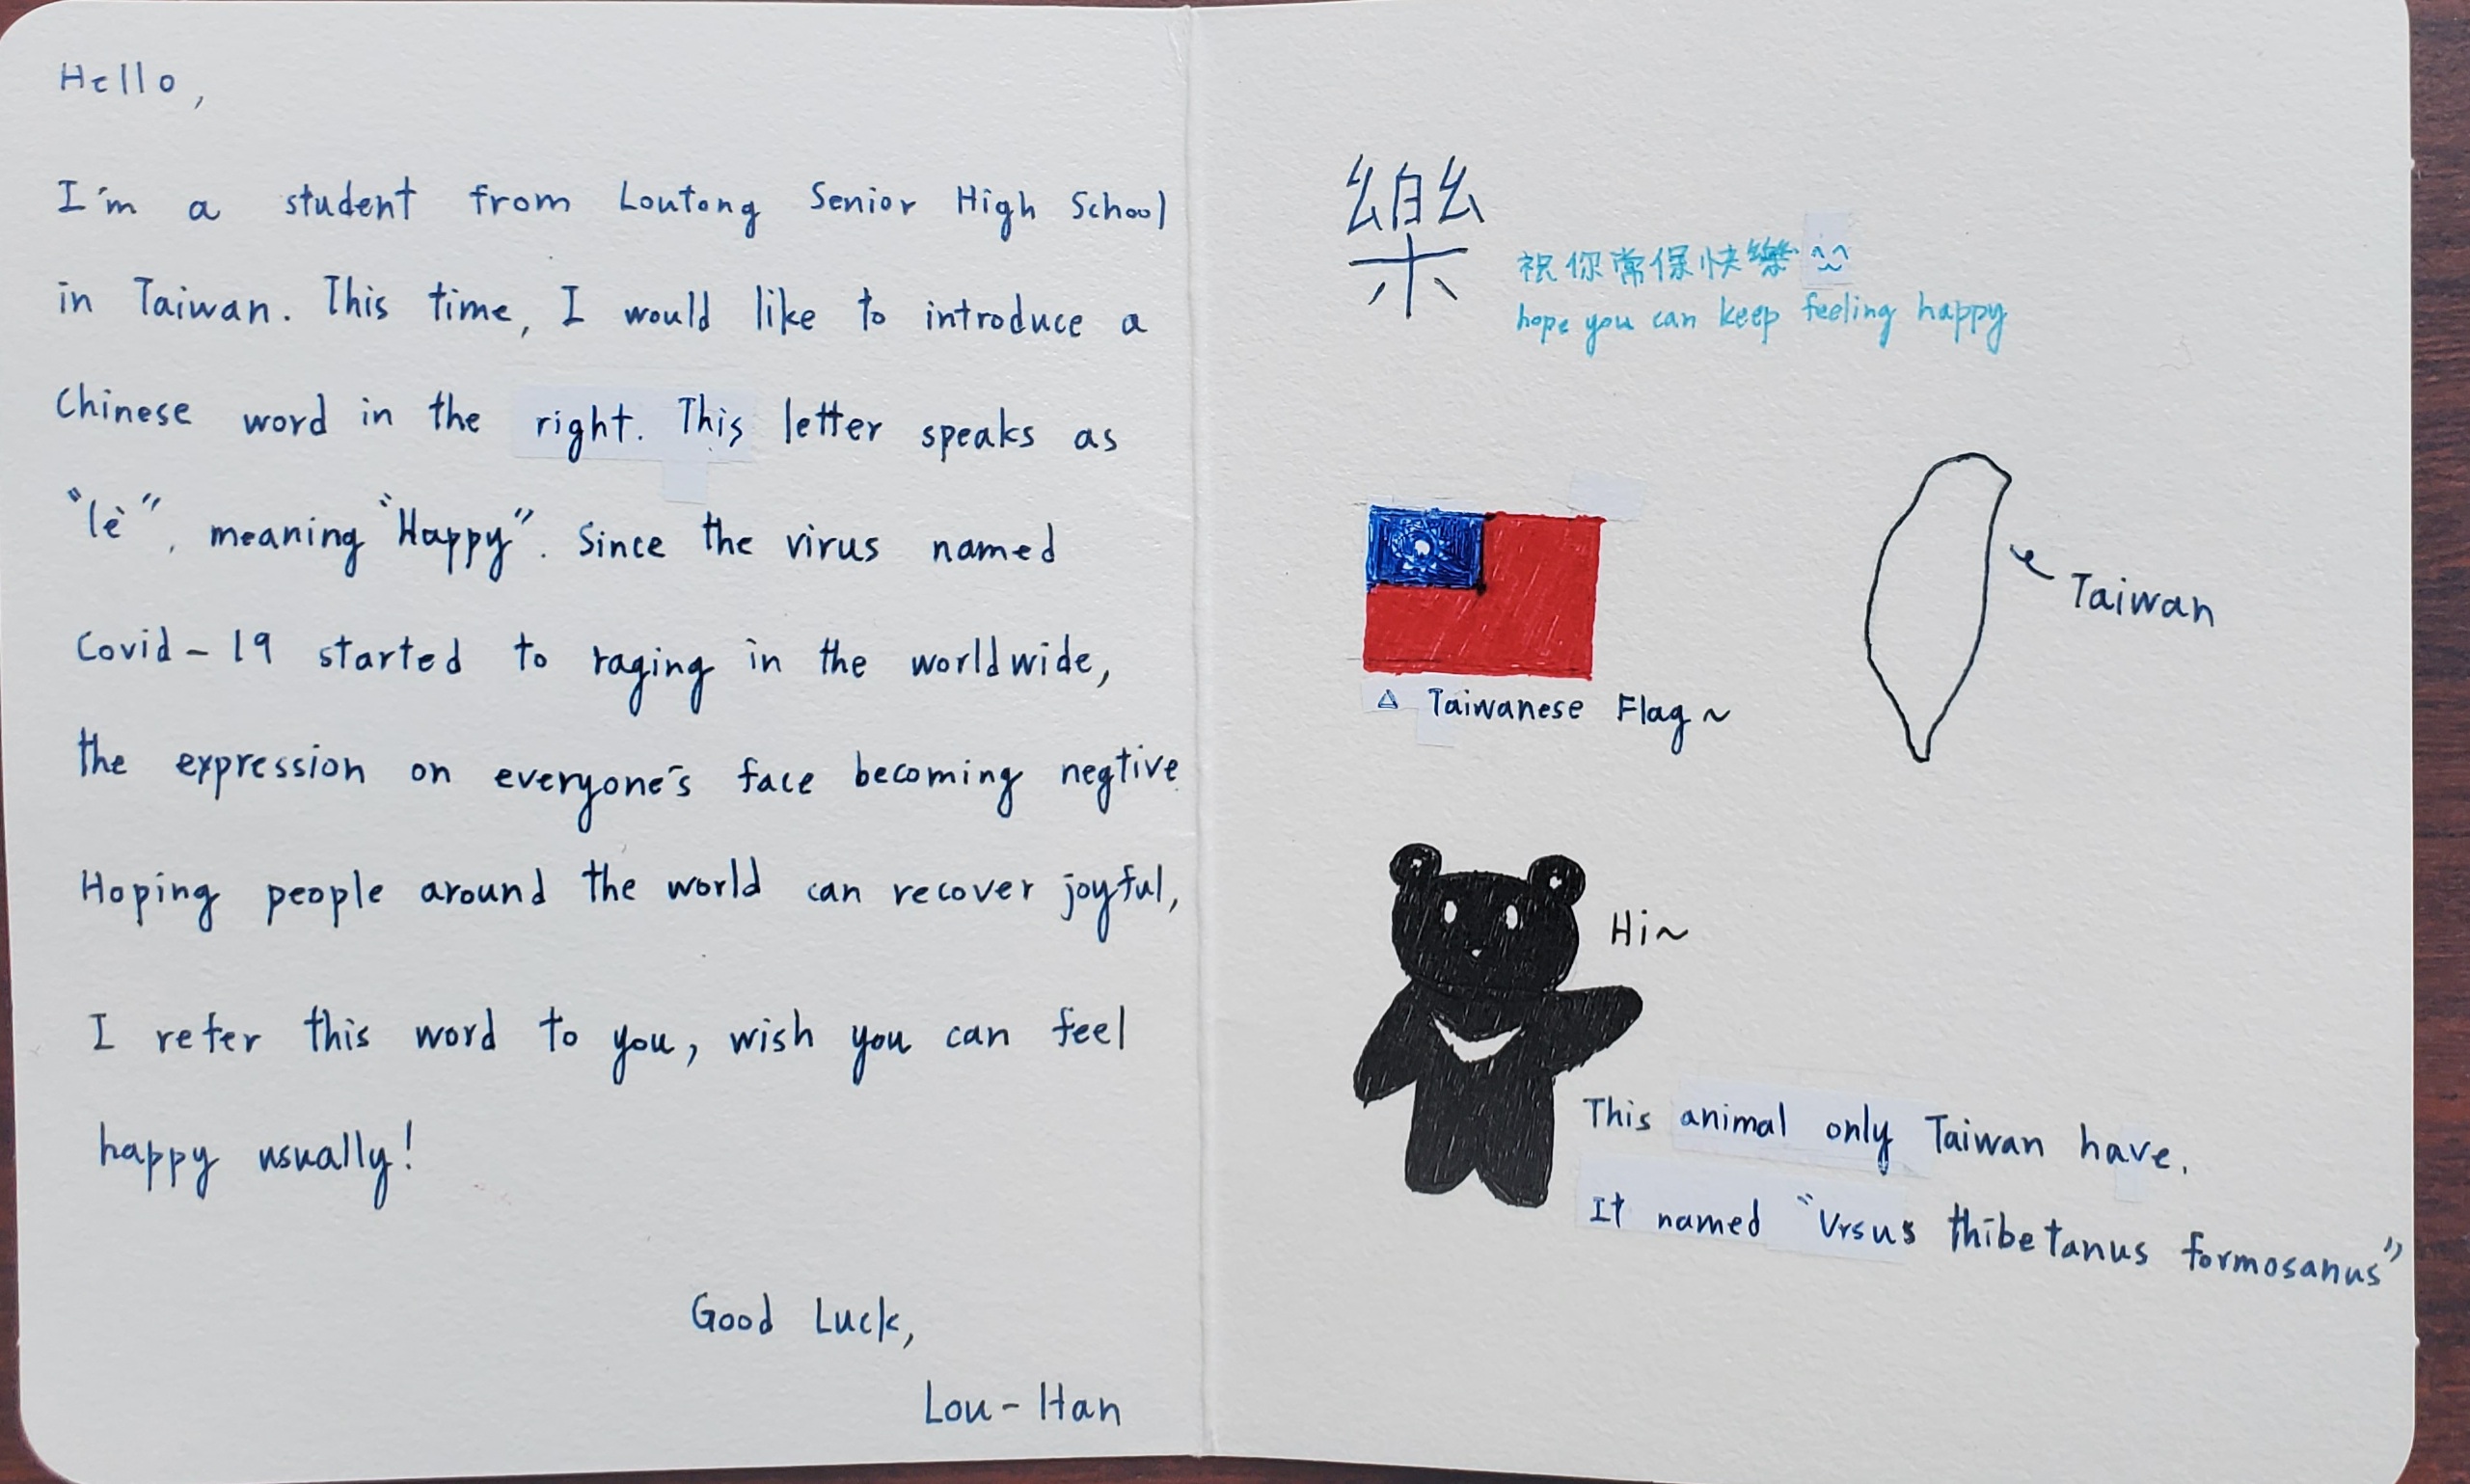 Hello,
I'm a student from Loutong Senior High School
in Taiwan. This time, I would like to introduce a
Chinese word in the right. This letter speaks as
"lè", meaning "Happy". Since the virus named
Covid-19 started to raging in the worldwide,
the expression on everyone's face becoming negtive.
Hoping people around the world can recover joyful,
I refer this word to you, wish you can feel
happy usually!
Good Luck,
Lou-Han
樂
祝你常保快樂
hope you can keep feeling happy
Taiwan
△ Taiwanese Flag~
Hi~
This animal only Taiwan have.
It named "Ursus thibetanus formosanus"